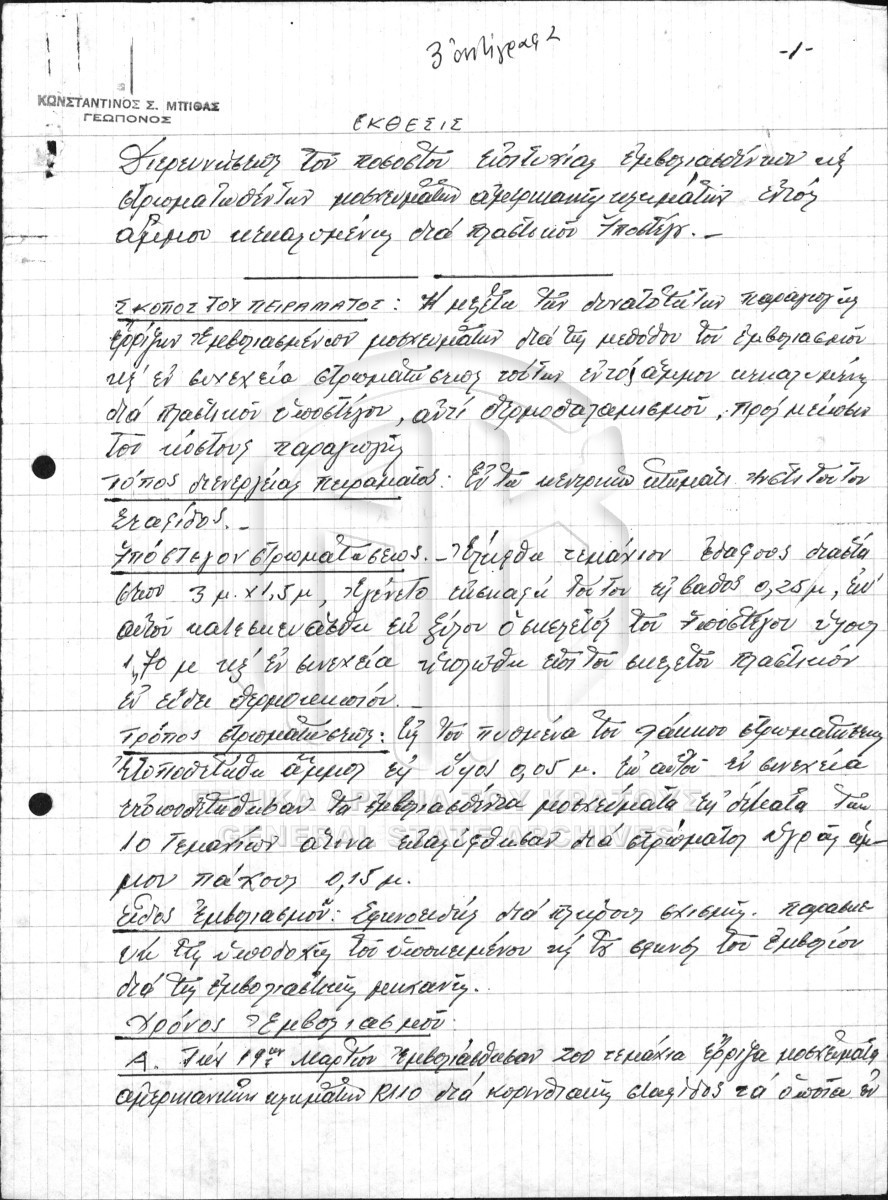 3 αντίγραφα
-1-
ΚΩΝΣΤΑΝΤΙΝΟΣ Σ. ΜΠΙΘΑΣ
ΓΕΩΠΟΝΟΣ
ΕΚΘΕΣΙΣ
Διερευνήσεως του ποσοστού επιτυχίας εμβολιασθέντων κ'
στρωματωθέντων μοσχευμάτων αμερικανικών κλημάτων εντός
άμμου κεκαλυμένης διά πλαστικού Υποστέγου. –
ΣΚΟΠΟΣ ΤΟΥ ΠΕΙΡΑΜΑΤΟΣ : Η μελέτη των δυνατοτήτων παραγωγής
ερρίζων Εμβολιασμένων μοσχευμάτων διά της μεθόδου του Εμβολιασμού
κ' εν συνεχεία στρωματώσεως τούτων εντός άμμου κεκαλυμένης
διά πλαστικού υποστέγου, αντί θερμοθαλαμισμού, προς μείωσιν
του κόστους παραγωγής
Τόπος διενεργείας πειράματος : Εν τω κεντρικώ κτήματι Ινστιτούτου
Σταφίδος. –
Υπόστεγον στρωματώσεως. – Ελήφθη τεμάχιον Εδάφους διαστά
σεων 3 μ. x 1,5 μ, Εγένετο εκσκαφή τούτου εις βάθος 0,25 μ, επ'
αυτού κατεσκευάσθη εκ ξύλου ο σκελετός του Υποστέγου ύψους
1,70 μ κ' εν συνεχεία ηπλώθη επί του σκελετού πλαστικόν
εν είδει θερμοκηπίου. –
Τρόπος στρωματώσεως : Εις τον πυθμένα του λάκκου στρωματώσεως
Ετοποθετήθη άμμος εις ύψος 0,05 μ. Επ' αυτού εν συνεχεία
ετοποθετήθησαν τα εμβολιασθέντα μοσχεύματα εις δέματα των
10 τεμαχίων άτινα εκαλύφθησαν διά στρώματος υγράς άμ-
μου πάχους 0,15 μ.
Είδος Εμβολιασμού : Σφηνοειδής διά πλήρους σχισμής. Παρασκε
υή της υποδοχής του υποκειμένου κ' της σφηνός του Εμβολίου
διά της εμβολιαστικής μηχανής.
Χρόνος Εμβολιασμού :
Α. Την 19ην Μαρτίου Εμβολιάσθησαν 200 τεμάχια έρριζα μοσχεύματα
αμερικανικών κλημάτων R110 διά κορινθιακής σταφίδος τα οποία εν
ΓΕΝΙΚΑ ΑΡΧΕΙΑ ΤΟΥ ΚΡΑΤΟΥΣ
GENERAL STATE ARCHIVES